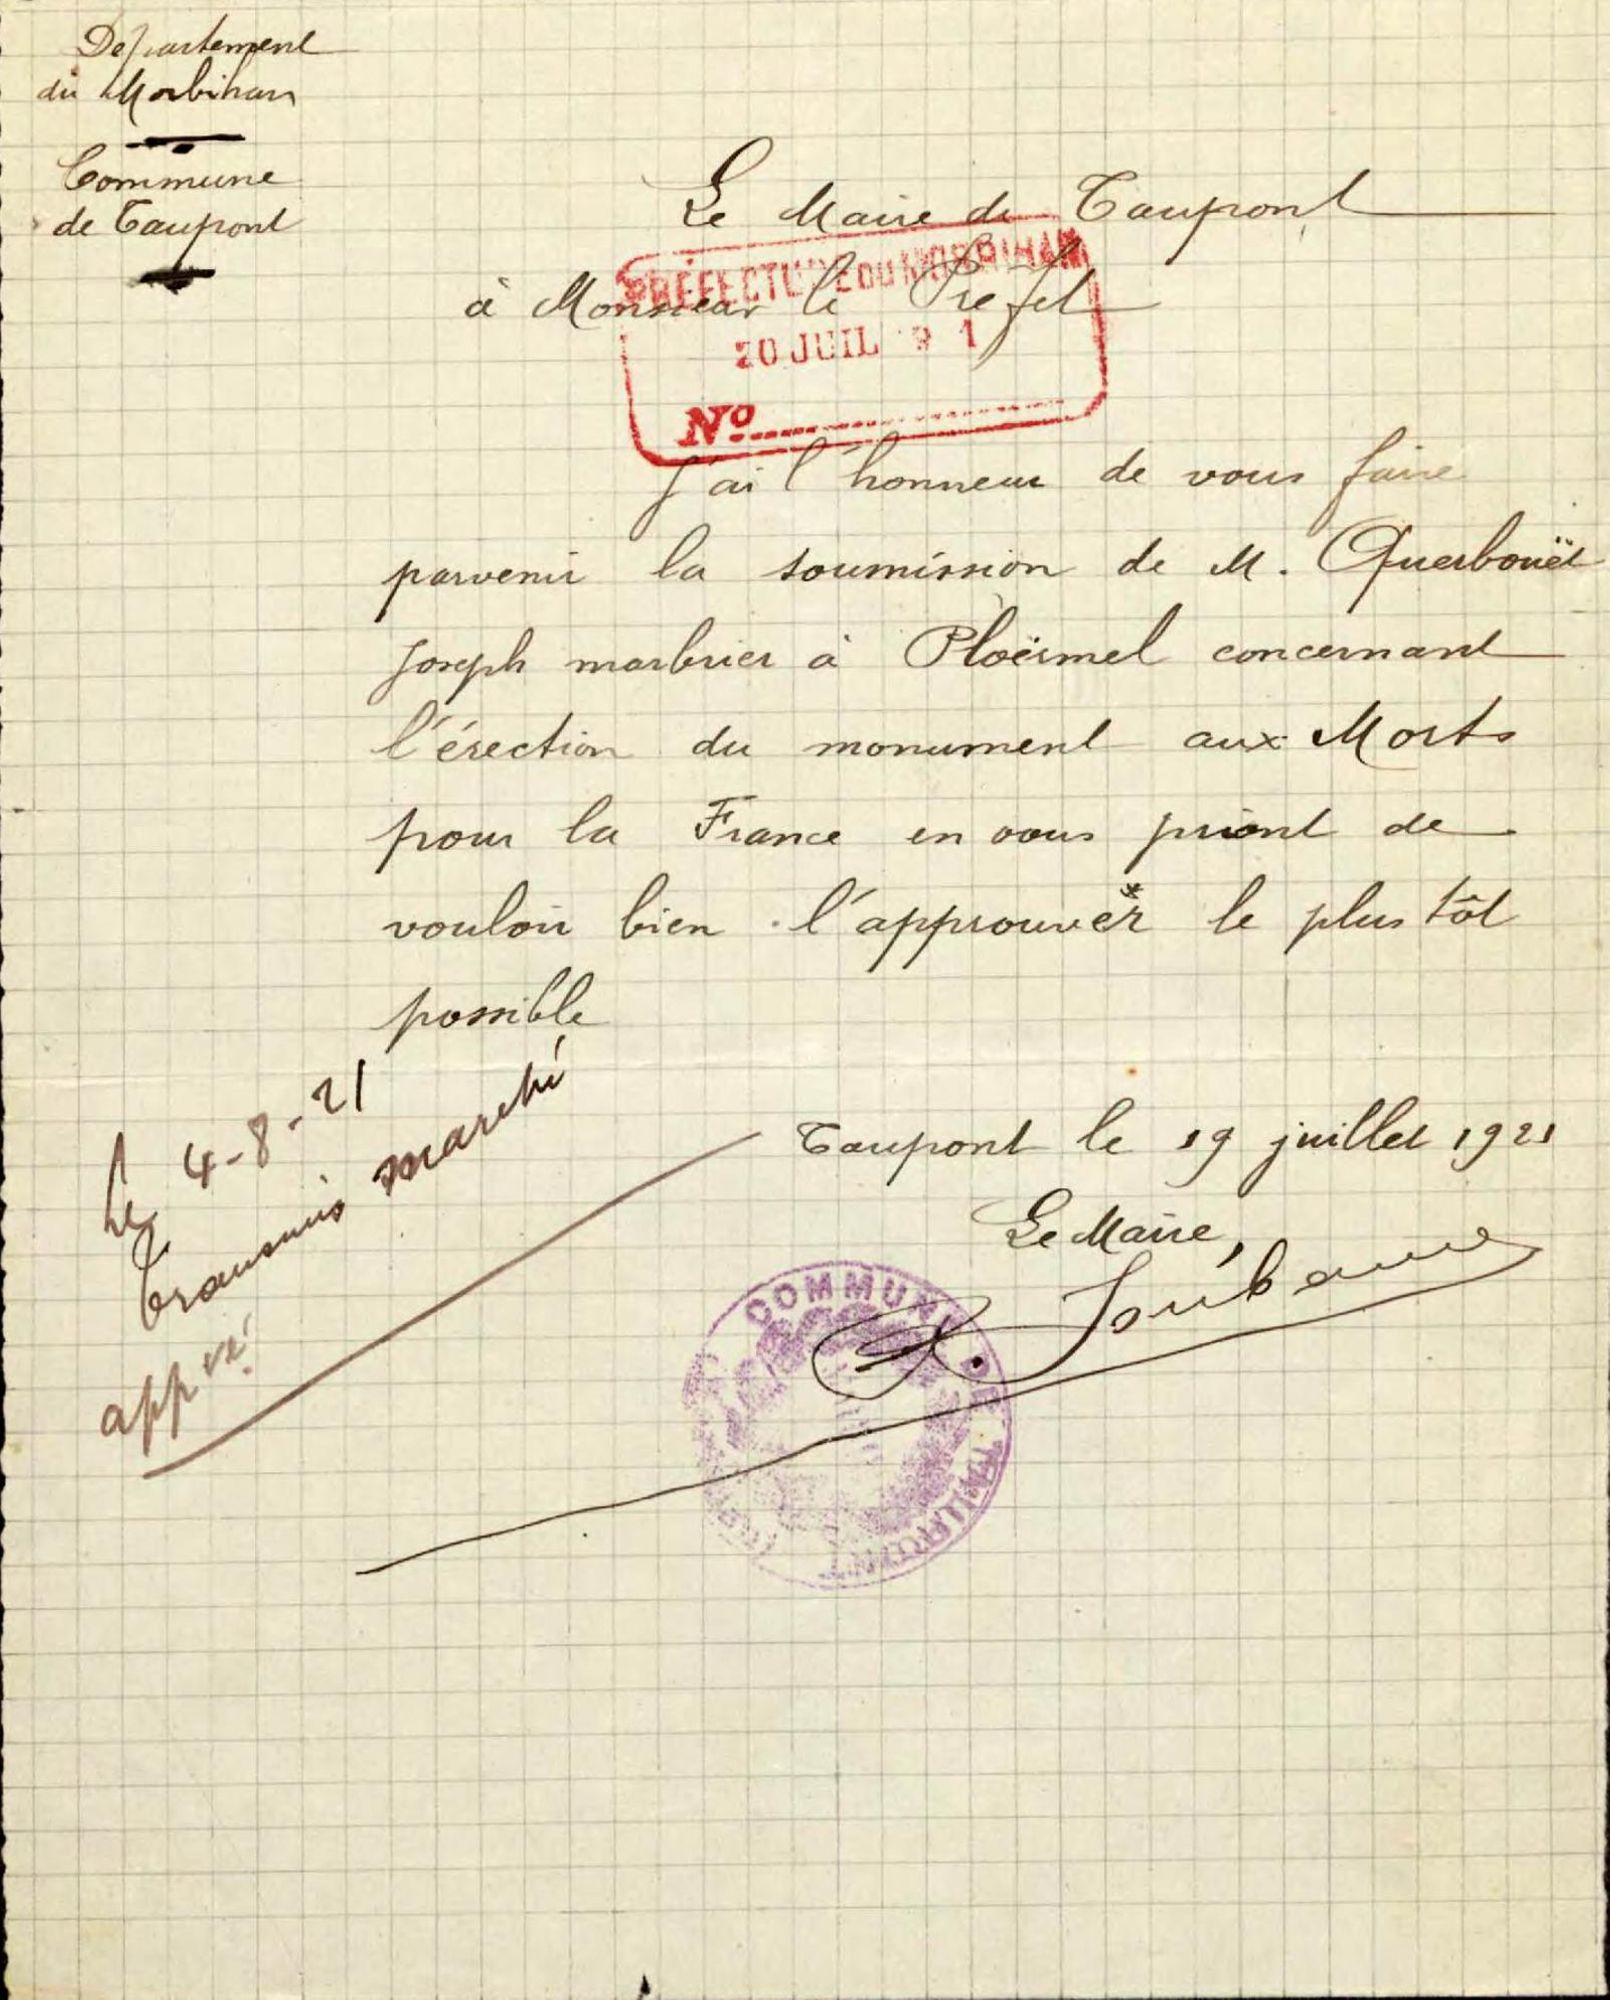 Département
du Morbihan
Commune
de Taupont
Le Maire de Taupont
à Monsieur le Préfet
PRÉFECTURE DU MORBIHAN
20 JUIL 9 1
No
J'ai l'honneur de vous faire
parvenir la soumission de M. Querbouët
Joseph marbrier à Ploërmel concernant
l'érection du monument aux Morts
pour la France en vous priant de
vouloir bien l'approuver le plus tôt
possible
Le 4-8-21
transmis marché
appvé
Taupont le 19 juillet 1921
Le Maire,
COMMUNE DE